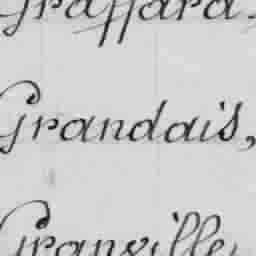 Graffard
Grandais,
Granville